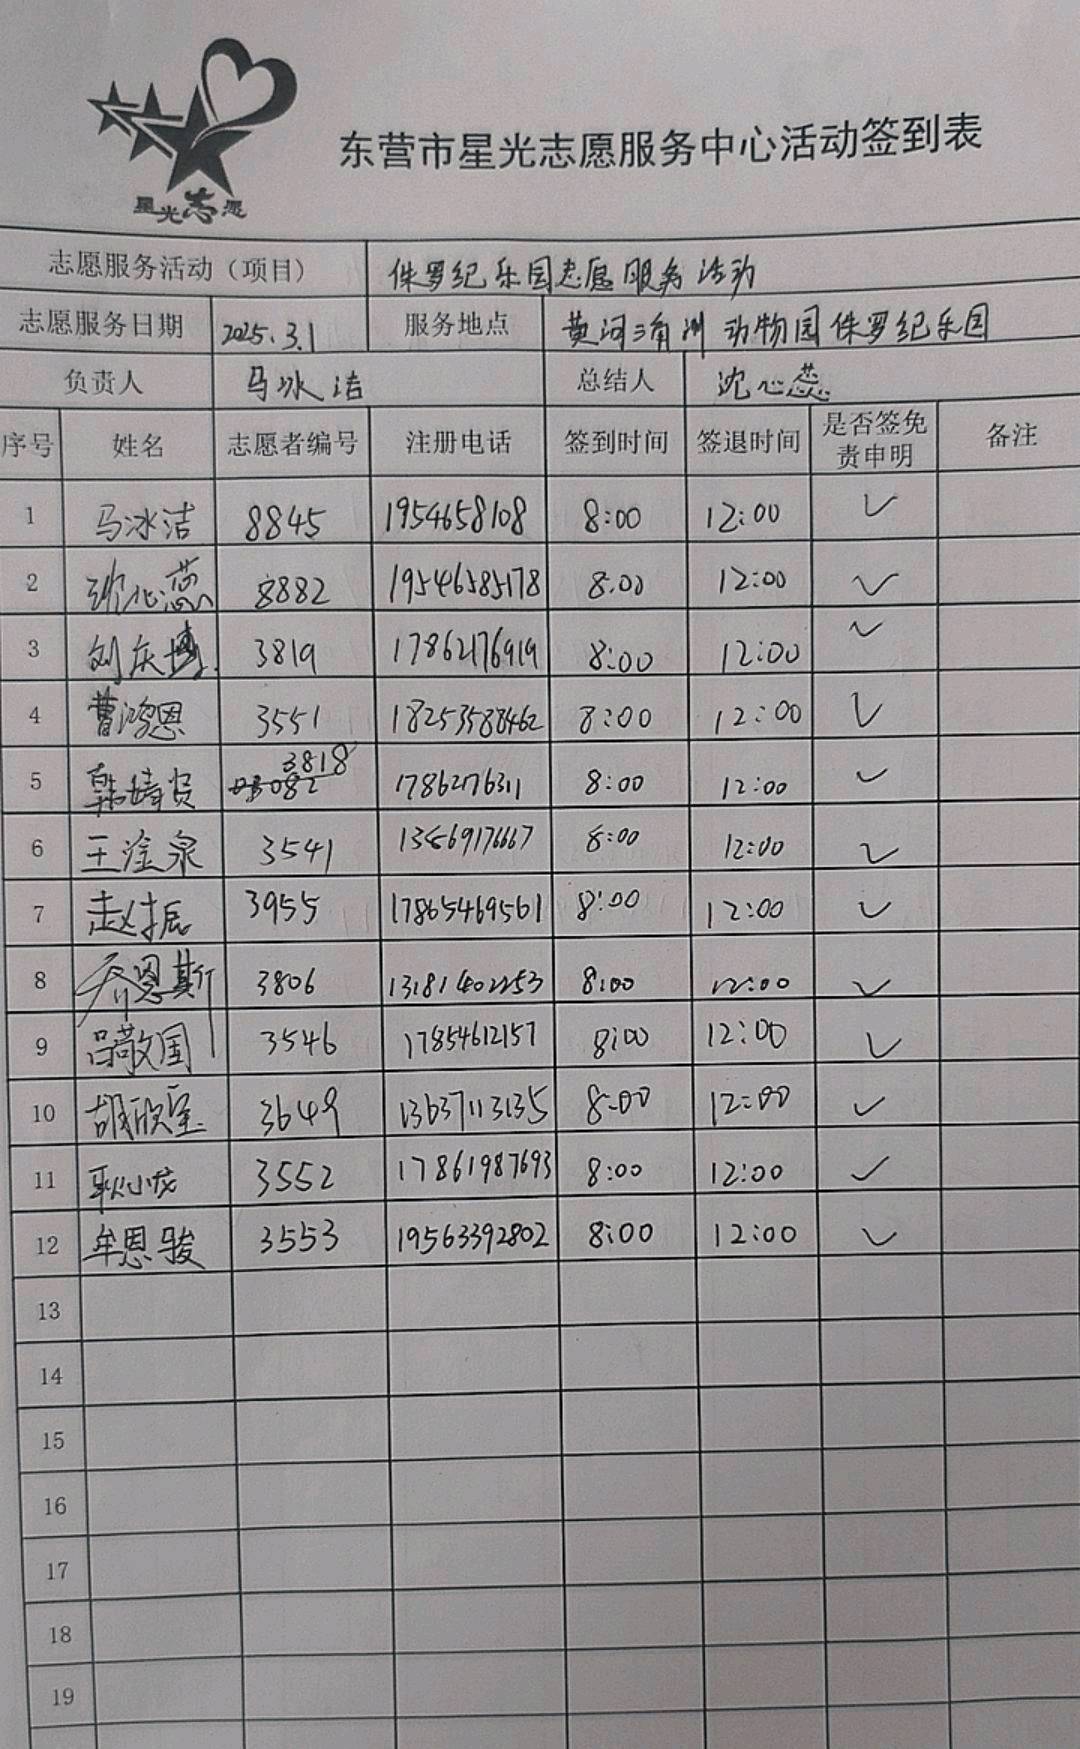 星光志愿
东营市星光志愿服务中心活动签到表
志愿服务活动（项目） 侏罗纪乐园志愿服务活动
志愿服务日期 2025.3.1 服务地点 黄河三角洲动物园侏罗纪乐园
负责人 马冰洁 总结人 沈心蕊
序号 姓名 志愿者编号 注册电话 签到时间 签退时间 是否签免责申明 备注
1 马冰洁 8845 1954658108 8:00 12:00 ✓
2 沈心蕊 8882 19546585178 8:00 12:00 ✓
3 刘庆博 3819 17862176919 8:00 12:00 ✓
4 曹鸿恩 3551 18253588462 8:00 12:00 ✓
5 韩婧 3818 17862176311 8:00 12:00 ✓
6 王淦泉 3541 8:00 12:00 ✓
7 赵振 3955 17865469561 8:00 12:00 ✓
8 乔恩斯 3806 13181402253 8:00 12:00 ✓
9 吕敬国 3546 17854612157 8:00 12:00 ✓
10 胡欣宝 3649 13637113135 8:00 12:00 ✓
11 耿小龙 3552 17861987693 8:00 12:00 ✓
12 牟恩骏 3553 19563392802 8:00 12:00 ✓
13
14
15
16
17
18
19